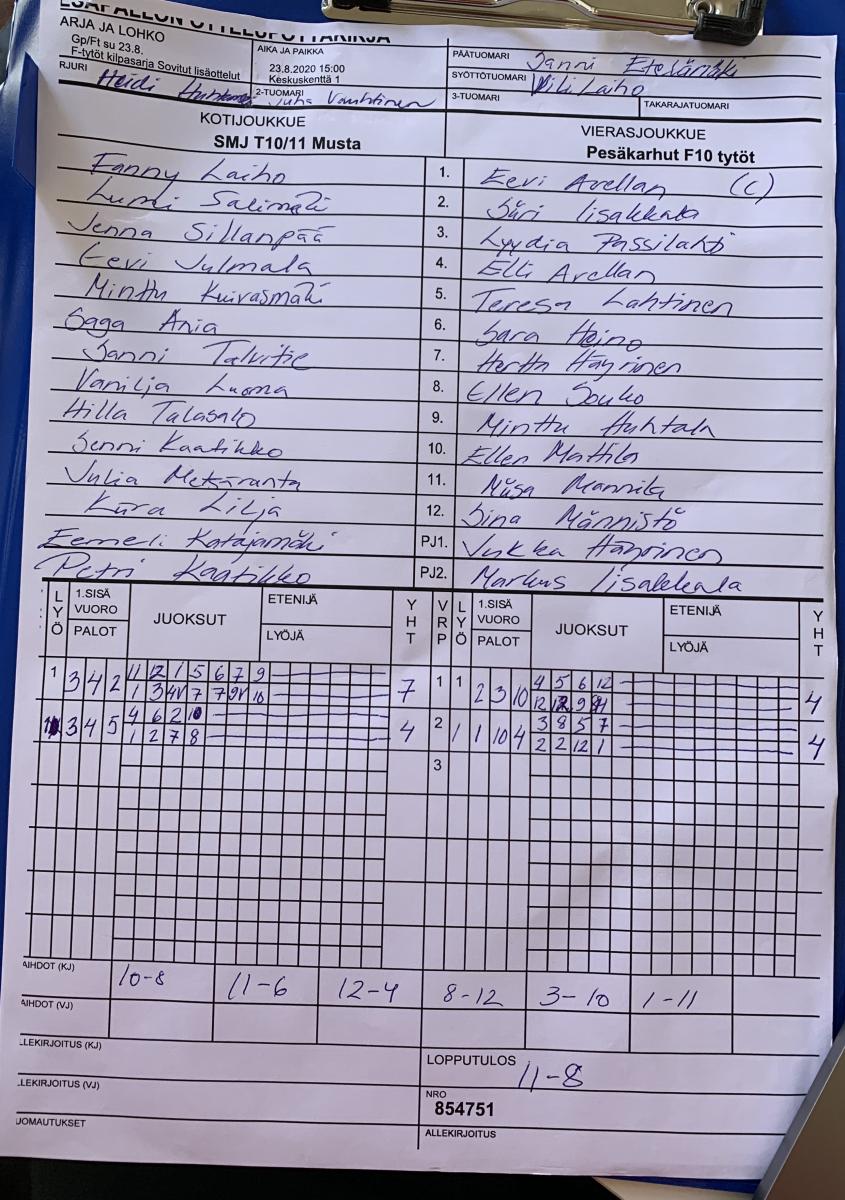 ARJA JA LOHKO
Gp/Ft su 23.8.
F-tytöt kilpasarja Sovitut lisäottelut
AIKA JA PAIKKA
23.8.2020 15:00
Keskuskenttä 1
PÄÄTUOMARI Sanni Etelämäki
SYÖTTÖTUOMARI Vili Laiho
RJURI Heidi
2-TUOMARI Juha
3-TUOMARI
TAKARAJATUOMARI
KOTIJOUKKUE
SMJ T10/11 Musta
VIERASJOUKKUE
Pesäkarhut F10 tytöt
Fanny Laiho 1. Eevi Avellan (c)
Lumi Salimäki 2. Säri Iisakkala
Jenna Sillanpää 3. Lyydia Passilahti
Eevi Julmala 4. Elli Avellan
Minttu Kuivasmäki 5. Teresa Lahtinen
Saga Ania 6. Sara Heino
Sanni Talvitie 7. Hertta Häyrinen
Vanilja Luoma 8. Ellen Souko
Hilla Talasalo 9. Minttu Huhtala
Senni Kaatikko 10. Ellen Mattila
Julia Metäranta 11. Miisa Mannila
Kiira Lilja 12. Sina Männistö
Eemeli Katajamäki PJ1. Jukka Häyrinen
Petri Kaatikko PJ2. Markus Iisakkala
LYÖ 1.SISÄ VUORO PALOT JUOKSUT ETENIJÄ LYÖJÄ YHT VRP LYÖ 1.SISÄ VUORO PALOT JUOKSUT ETENIJÄ LYÖJÄ YHT
1 3 4 2 11 12 1 5 6 7 9 7 1 1 2 3 10 4 5 6 12 4
1 3 4V 7 7 9V 10 12 9
3 4 5 4 6 2 10 4 2 1 1 10 4 3 8 5 7 4
1 2 7 8 2 2 12 1
3
AIHDOT (KJ) 10-8 11-6 12-4 8-12 3-10 1-11
AIHDOT (VJ)
LLEKIRJOITUS (KJ)
LOPPUTULOS 11-8
LLEKIRJOITUS (VJ)
NRO
854751
UOMAUTUKSET
ALLEKIRJOITUS